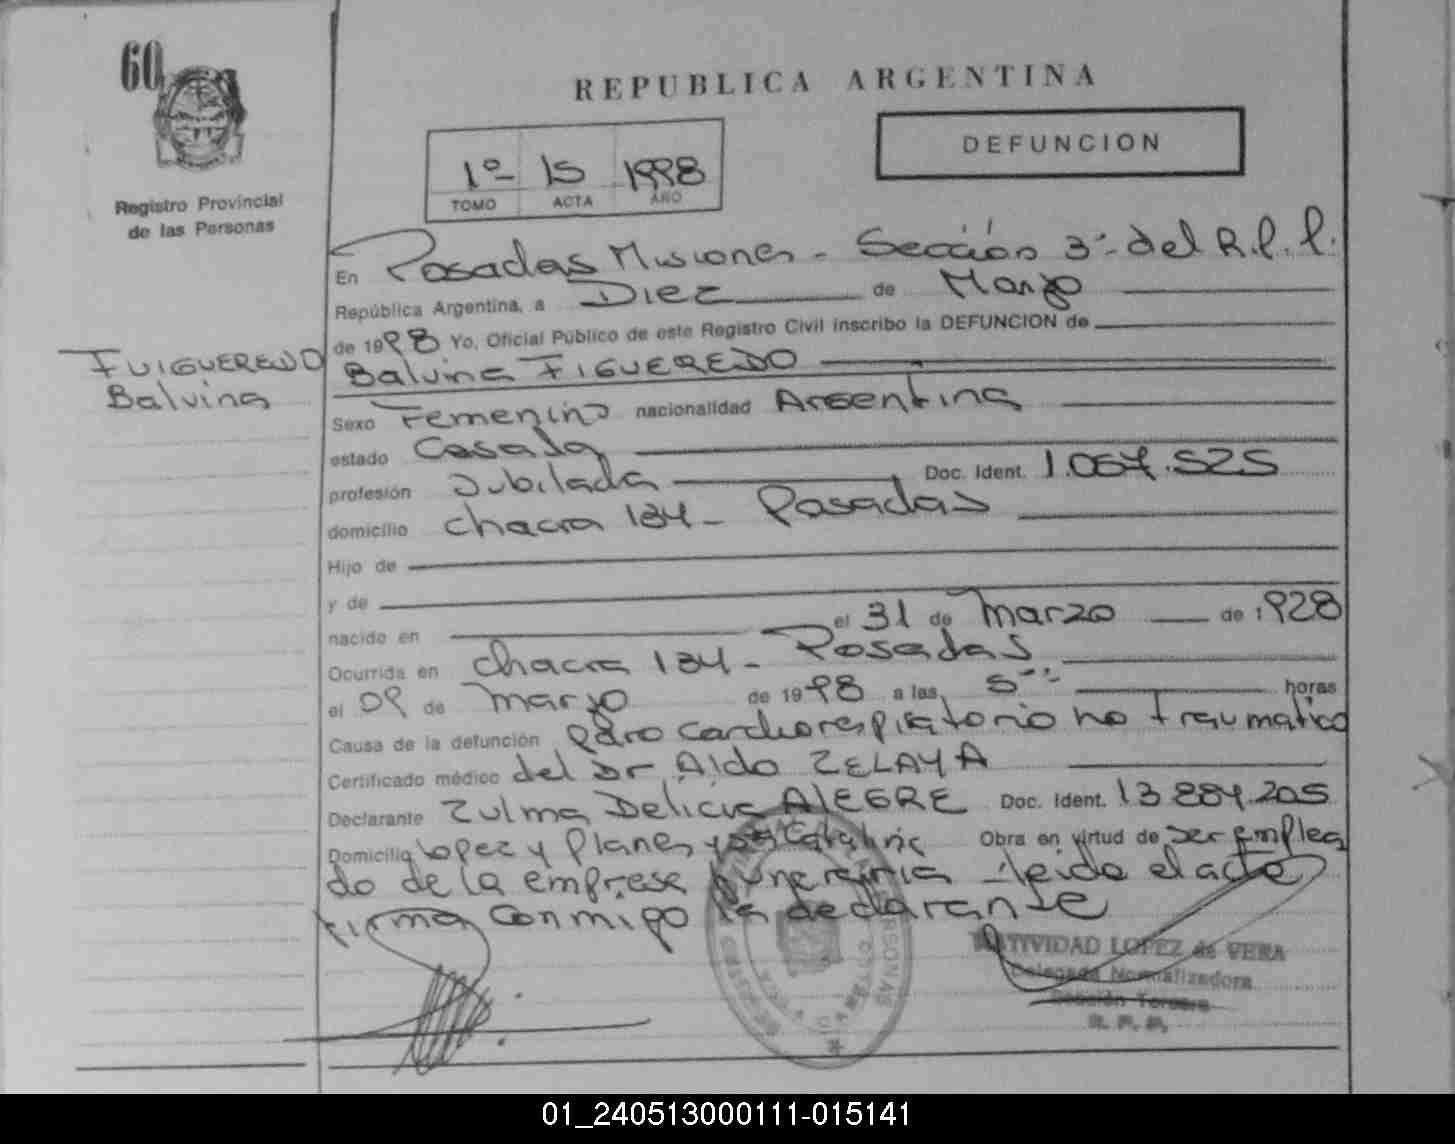 60
REPUBLICA ARGENTINA
DEFUNCION
1º 15 1998
TOMO ACTA AÑO
Registro Provincial
de las Personas
En Posadas Misiones - Sección 3ª del R.P.P.
República Argentina, a Diez de Marzo
de 1998 Yo, Oficial Público de este Registro Civil inscribo la DEFUNCION de
FUIGUEREDO
Balvina
Balvina FIGUEREDO
Sexo Femenino nacionalidad Argentina
estado Casada
profesión Jubilada Doc. Ident. 1.067.525
domicilio chacra 134 - Posadas
Hijo de
y de
nacido en el 31 de Marzo de 1928
Ocurrida en chacra 134 - Posadas
el 09 de marzo de 1998 a las 5 horas
Causa de la defunción paro cardiorespiratorio no traumatico
Certificado médico del Dr Aldo ZELAYA
Declarante Zulma Delicia ALEGRE Doc. Ident. 13 884.205
Domicilio Lopez y Planes y Obra en virtud de ser emplea
do de la empresa funeraria leida el acta
firma conmigo la declarante
NATIVIDAD LOPEZ de VERA
Delegada Normalizadora
Sección Tercera
R. P. P.
01_240513000111-015141